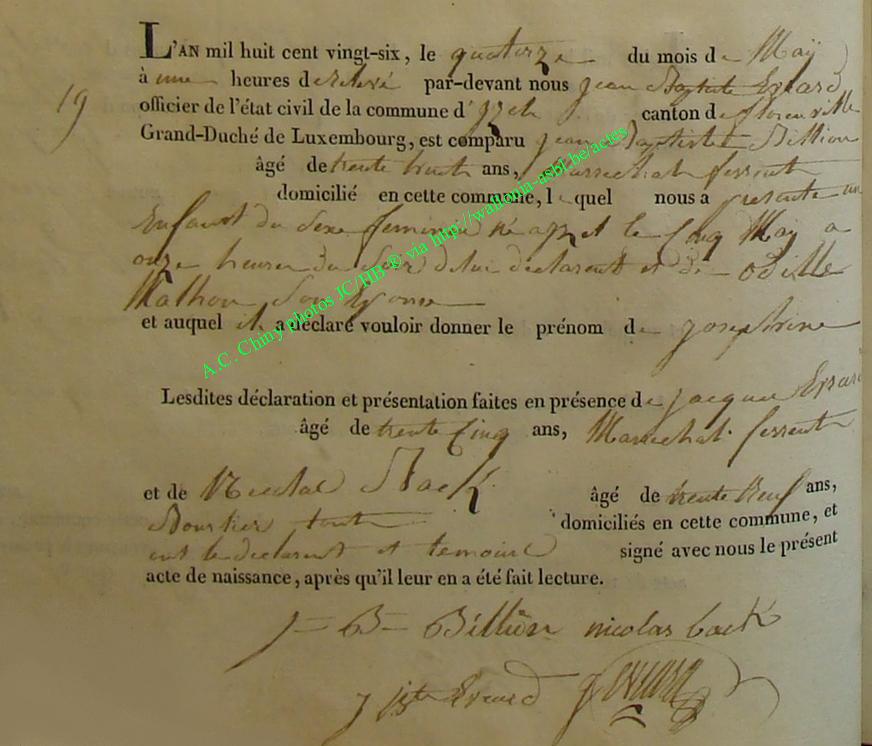 L'AN mil huit cent vingt-six, le quatorze du mois de Maÿ
19
à une heures de relevé par-devant nous jean Baptiste Evrard
officier de l'état civil de la commune d'izel canton de florenville
Grand-Duché de Luxembourg, est comparu jean Baptiste Billion
âgé de trente huit ans, Marechal ferrent
domicilié en cette commune, lequel nous a presenté un
Enfant du Sexe feminin né a et le cinq Maÿ a
onze heures du Soir de lui declarent et de odille
Mathon Son Epouse
et auquel il a déclaré vouloir donner le prénom de josephine
Lesdites déclaration et présentation faites en présence de jacques Evrard
âgé de trente cinq ans, Marechal ferrent
et de Nicolas âgé de trente neuf ans,
domiciliés en cette commune, et
ont le declarent et temoins signé avec nous le présent
acte de naissance, après qu'il leur en a été fait lecture.
J = B = Billion nicolas
j bte Evrard
A.C. Chiny photos JC/HB ® via http://wallonia-asbl.be/actes